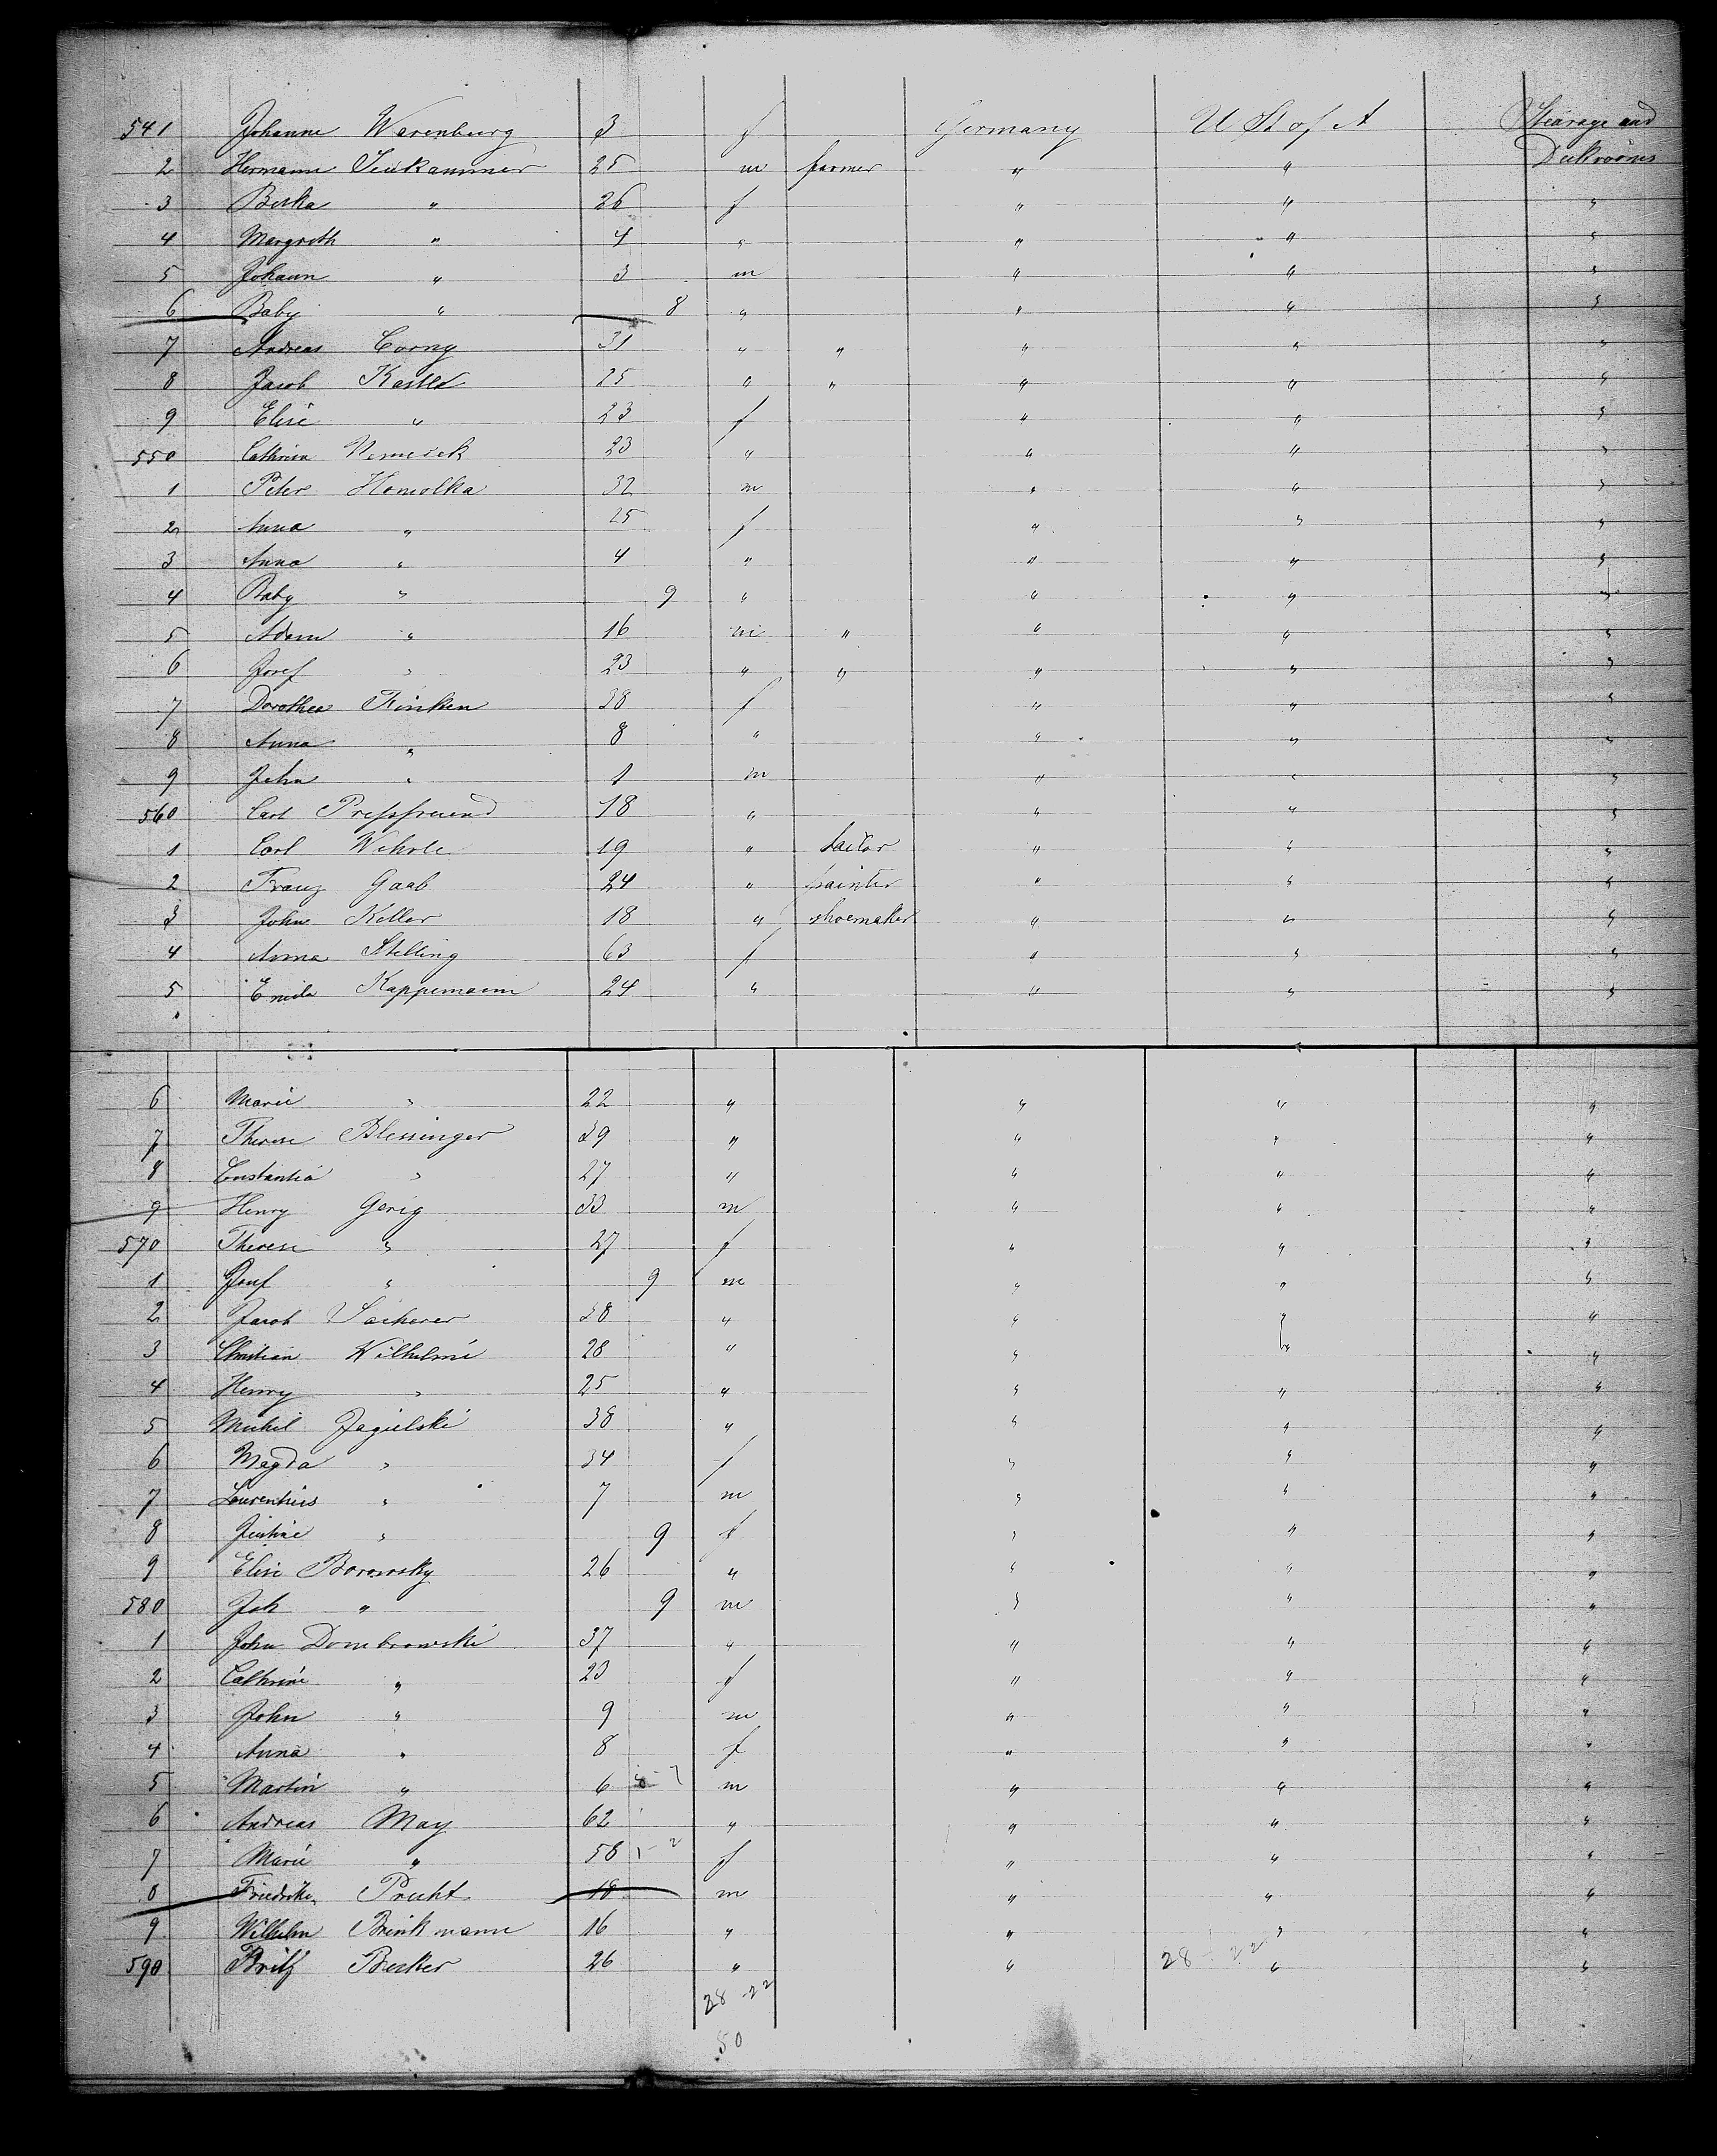 541 Johanne Warenburg 3 f Germany U St of A Stearage and
2 Hermann 25 m farmer " " Deckrooms
3 " 26 f " " "
4 Margreth " 4 " " " "
5 Johann " 3 m " " "
6 Baby " 8 " " " "
7 Andreas Corny 31 " " " " "
8 Jacob 25 " " " " "
9 Elise " 23 f " " "
550 Cathrina Nemesek 23 " " " "
1 Peter Homolka 32 m " " "
2 Anna " 25 f " " "
3 Anna " 4 " " " "
4 Baby " 9 " " " "
5 Adam " 16 m " " " "
6 Josef " 23 " " " " "
7 Dorothea Rinken 38 f " " "
8 Anna " 8 " " " "
9 John " 1 m " " "
560 Carl Pressfreund 18 " " " "
1 Carl Wehrle 19 " tailor " " "
2 Franz Gaab 24 " painter " " "
3 John Keller 18 " shoemaker " " "
4 Anna Stelling 63 f " " "
5 Emila Kappemann 24 " " " "
6 Marie " 22 " " " "
7 Therese Blessinger 39 " " " "
8 Constantia " 27 " " " "
9 Henry Gerig 33 m " " "
570 Therese " 27 f " " "
1 Josef " 9 m " " "
2 Jacob Sacherer 38 " " " "
3 Christian Wilhelmi 28 " " " "
4 Henry " 25 " " " "
5 Michel Jagielski 38 " " " "
6 Magda " 34 f " " "
7 Laurentius " 7 m " " "
8 " 9 f " " "
9 Elise Borowsky 26 " " " "
580 Joh " 9 m " " "
1 John Dombrowski 37 " " " "
2 Cathrine " 23 f " " "
3 John " 9 m " " "
4 Anna " 8 f " " "
5 Martin " 6 m " " "
6 Andreas May 62 " " " "
7 Marie " 58 f " " "
8 Friedrike Precht 18 m " " "
9 Wilhelm Brinkmann 16 " " " "
590 Fritz Becker 26 " " 28 22 " "
28 22
50